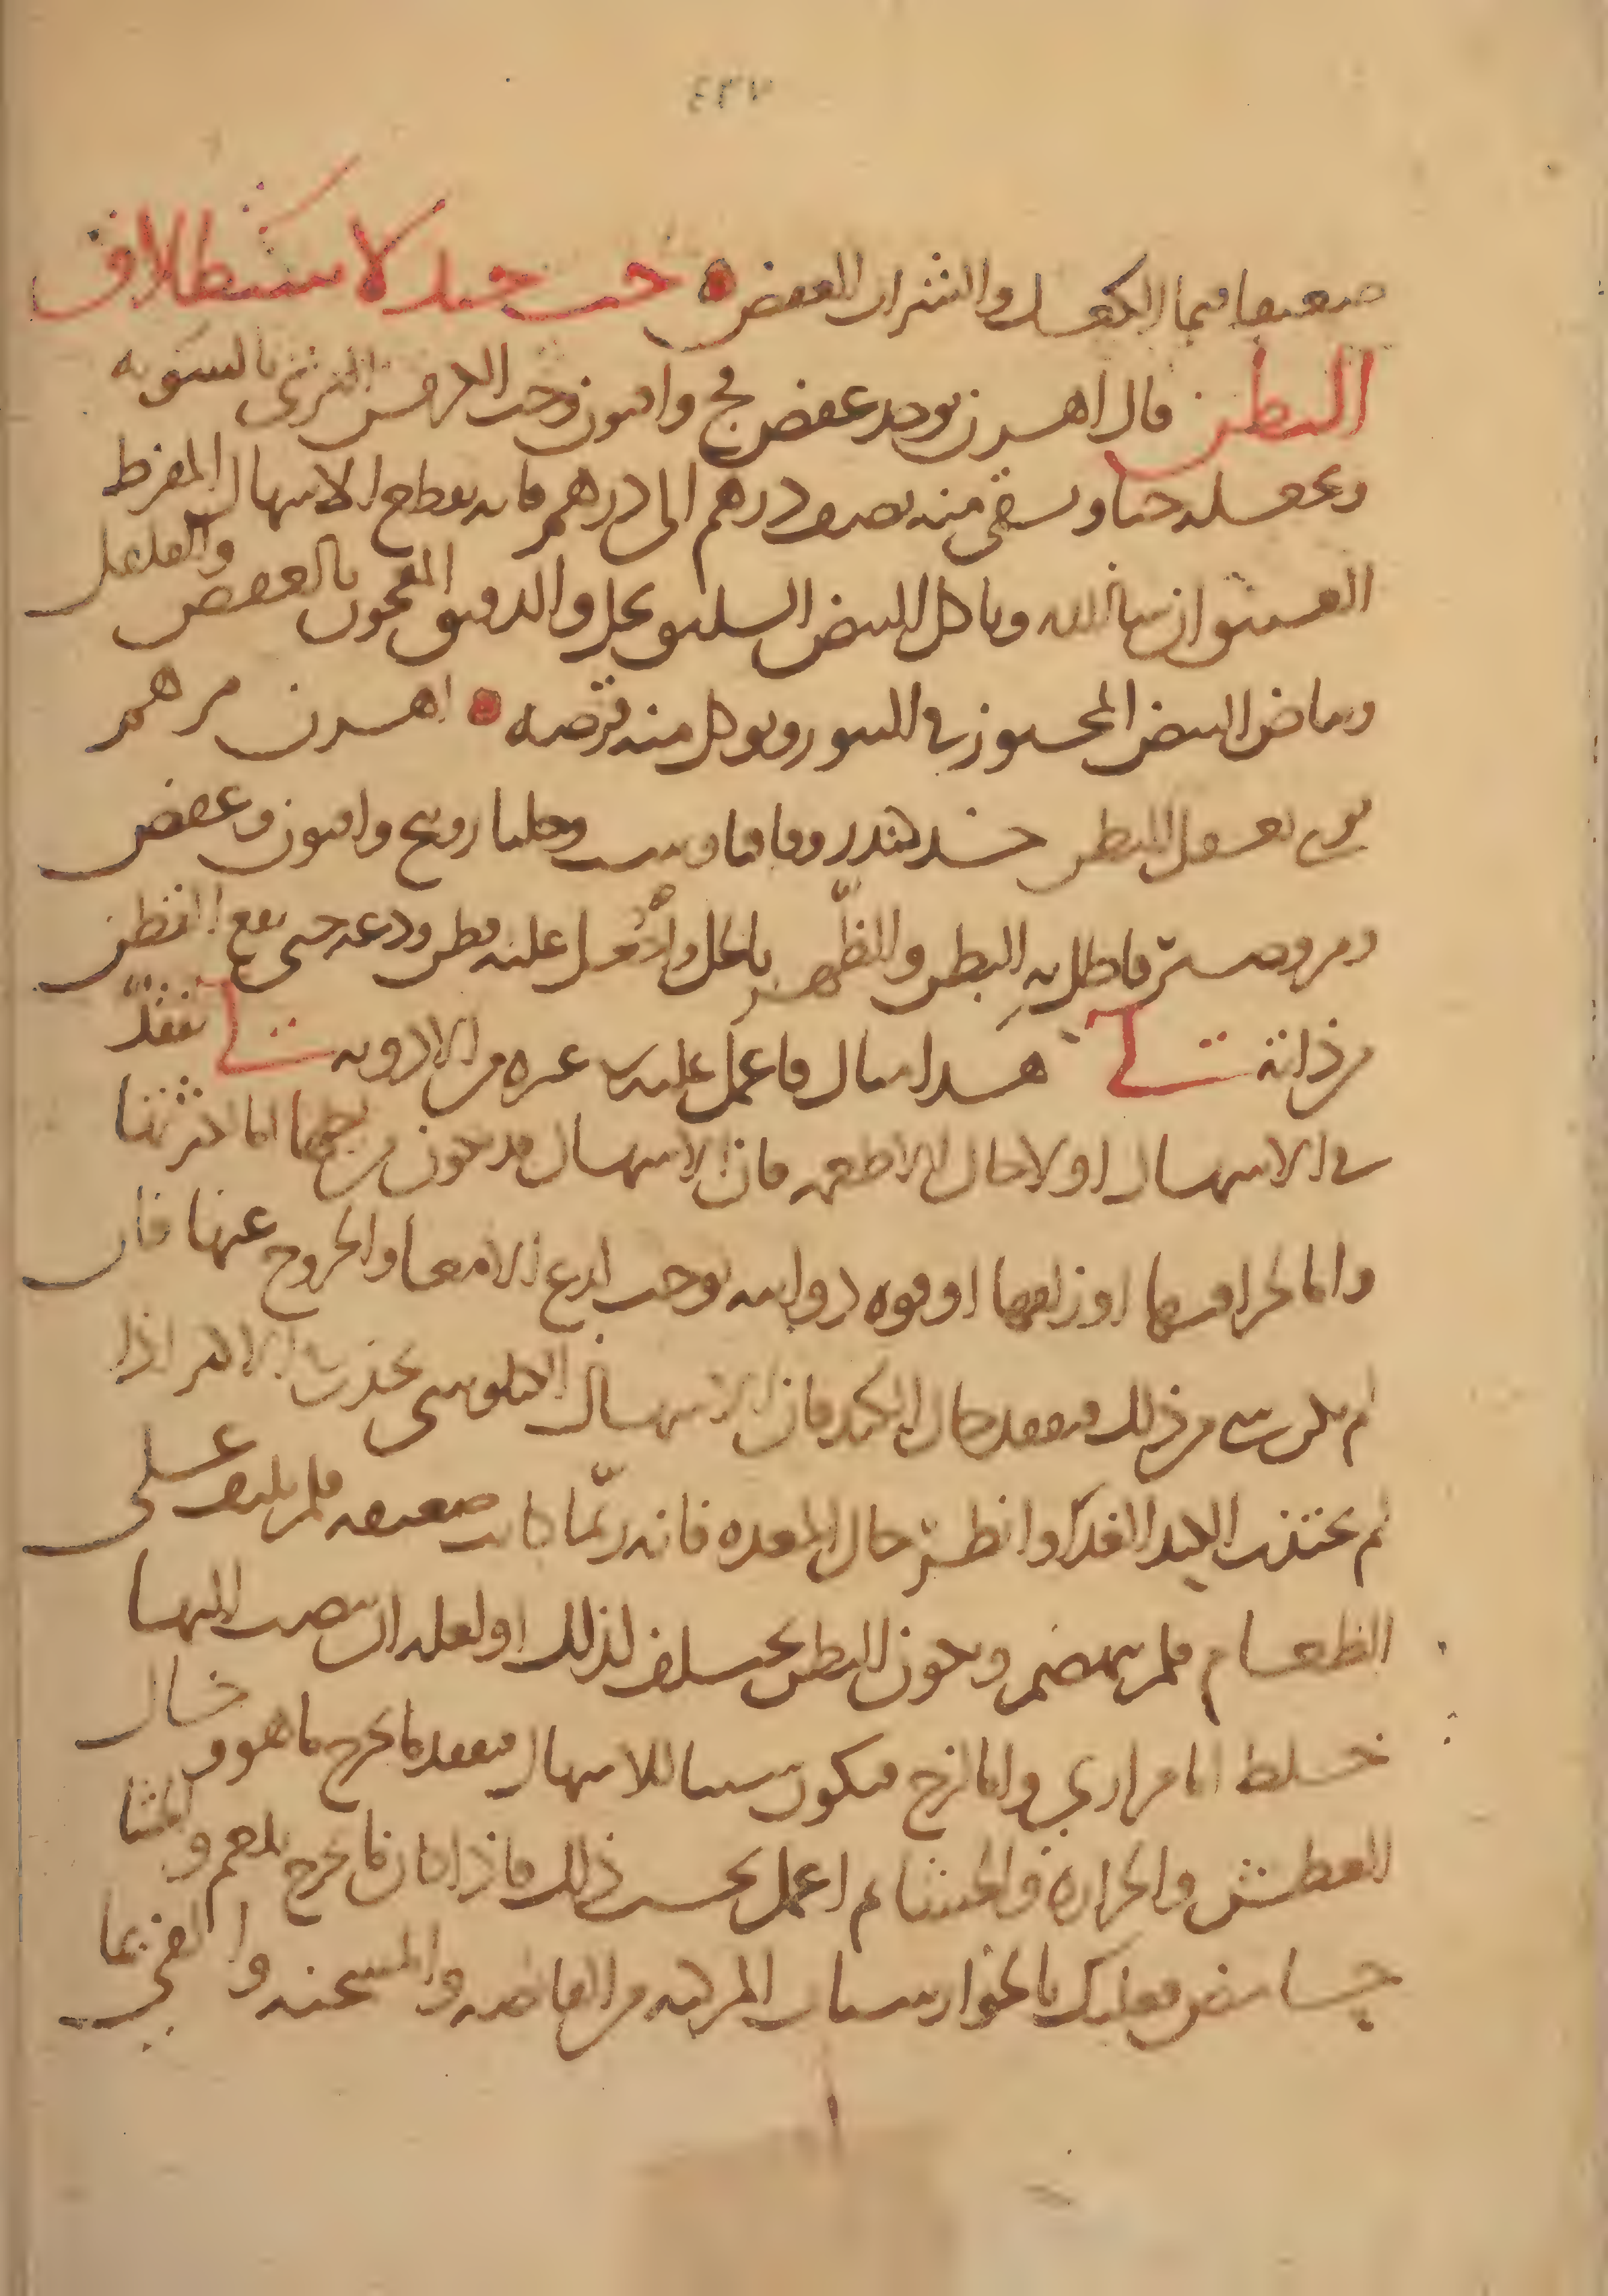 ٤٣٧
ضعيفا فبماء الكعك والشراب العفص حب جيد لاستطلاق
البطن قال اهرن يوخذ عفص فج وافيون وحب الكرفس البري بالسويه
ويجعل حبا ويسقى منه نصف درهم الى درهم فانه يقطع الاسهال المفرط
العتيق ان شا الله وياكل البيض السليق بخل والدقيق المعجون بالعفص والفلفل
وبياض البيض المخبوز في التنور ويوكل منه قرصه اهرن مرهم
قوي يعقل البطن كندر واقاقيا وجلنار وبنج وافيون وعفص
ومر وصبر فاطل به البطن والظهر بالخل واجعل عليه قطن ودعه حتى يقع القطن
من ذاته لي هذا مثال فاعمل عليه غيره من الادويه لي تفقد
في الاسهال اولا حال الاطعمه فان الاسهال قد يكون من اجلها اما لكثرتها
واما لحرافتها او لزلقها او قوه دوائيه توجب لدع الامعا والخروج عنها فان
لم يكن شي من ذلك فتفقد حال الكبد فان الاسهال الكيلوسي يحدث الاكثر اذا
لم تجتذب الكبد الغذا وانظر حال المعده فانه ربما كانت ضعيفه فلم تلتف على
الطعام فلم ينهضم ويكون البطن يختلف لذلك او لعله ان ينصب اليها
خلط اما مراري واما لزج فيكون سببا للاسهال فتفقد ما يخرج ما هو وحال
العطش والحراره والجشا ثم اعمل بحسب ذلك فاذا كان ما يخرج بلغم والجشا
حامض فعليك بالجوارشنات المركبه من القابضه والمسخنه والقي بما